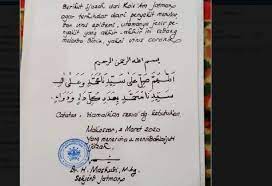 Berikut Ijazah dari Rais 'Am Jatman
agar terhindar dari penyakit menular
dan virus epidemi, utamanya jenis pe
nyakit yang akhir-akhir ini sedang
melanda dunia, yakni virus corona
بسم الله الرحمن الرحيم
اللهم صل على سيدنا محمد وعلى آل
سيدنا محمد بعدد كل داء ودواء
Catatan: diamalkan sesuai dg kebutuhan
Makassar, 2 Maret 2020
Yang menerima & membolehkan
ijazah
Dr. H. Mashudi, M.Ag.
Sekjen Jatman